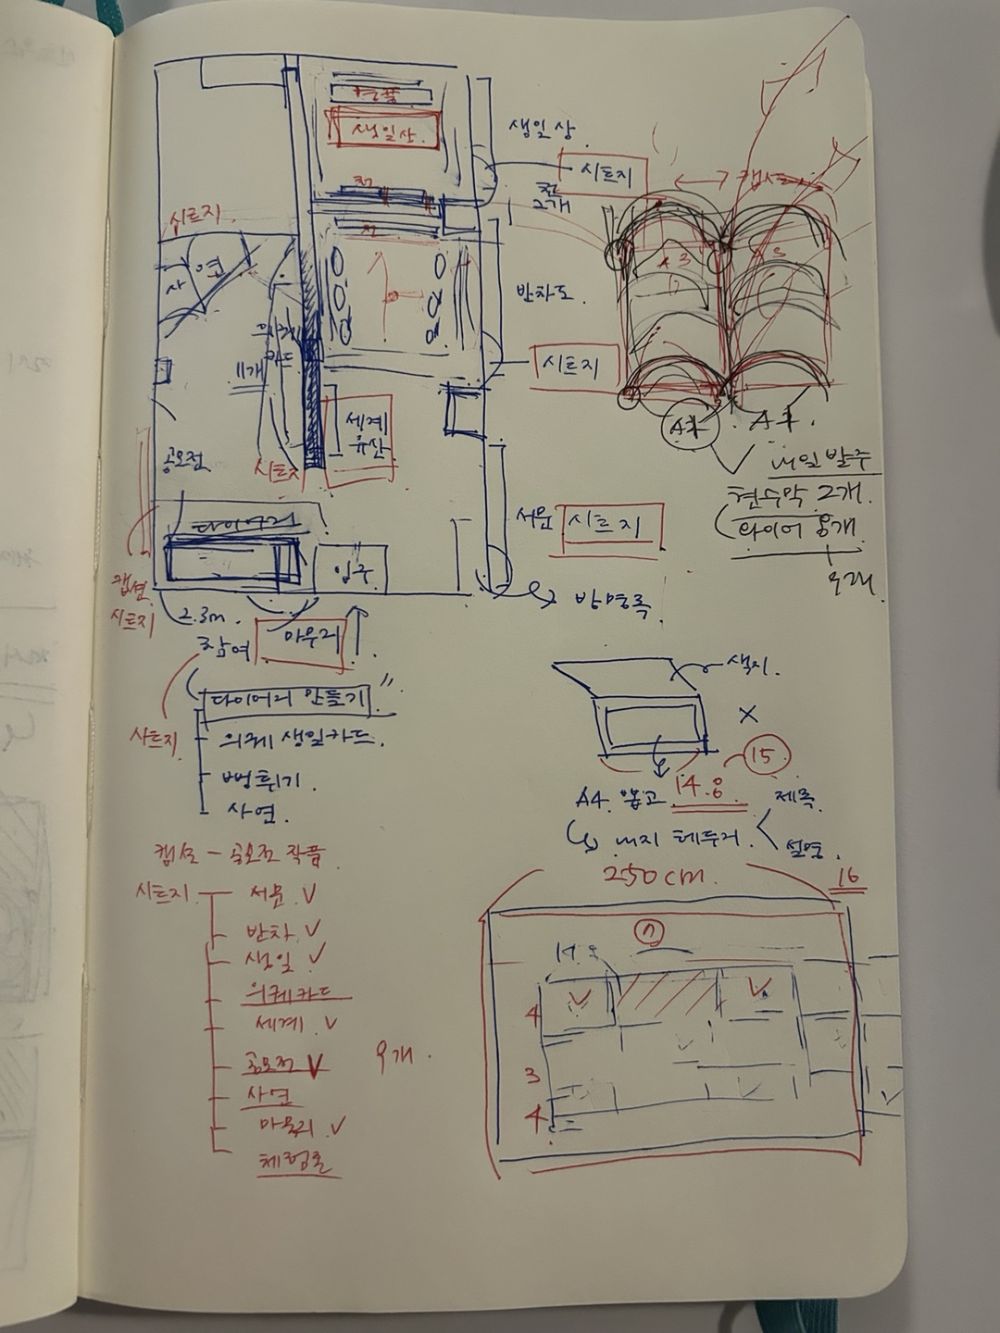 병풍
생일상
생일상
시트지
천
2개
천
시트지
사연
반차도
의궤
카드
11개
시트지
세계
유산
공모전
시트지
다이어리
입구
서문
시트지
방명록
캡션
시트지
2.3m
참여
마무리
A3
A1
A1
내일 발주
현수막 2개
와이어 8개
다이어리 만들기
시트지
의궤 생일카드
뻥튀기
사연
색지
×
15
14.8
A4 뽑고
제목
내지 테두리
설명
캡션 - 공모전 작품
시트지
서문 V
반차 V
생일 V
의궤카드
세계 V
공모전 V
사연
마무리 V
체험존
250cm
16
4
3
4